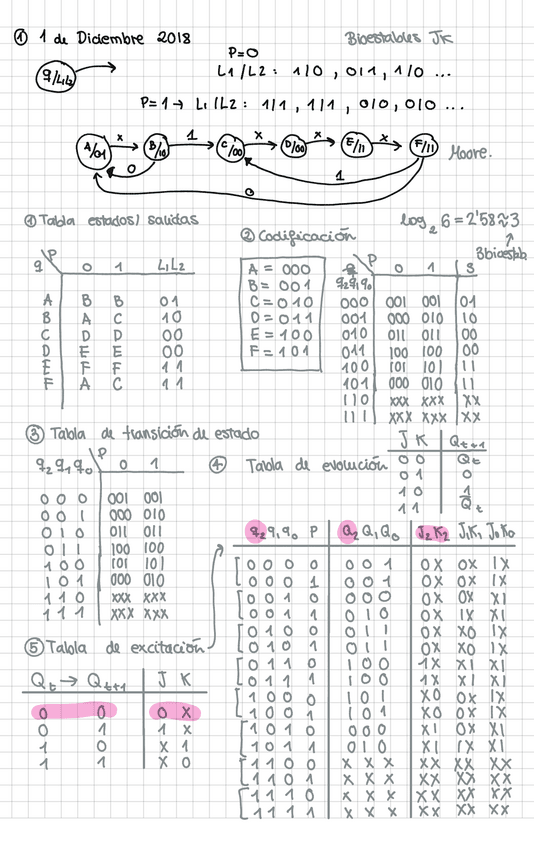 ① 1 de Diciembre 2018 Bioestables JK
P=0
q/L1L2 L1/L2 : 1/0 , 0/1 , 1/0 ...
P=1 → L1/L2 : 1/1 , 1/1 , 0/0 , 0/0 ...
x 1 x x x
A/01 B/10 C/00 D/00 E/11 F/11 Moore.
0 1
0
① Tabla estados/ salidas log₂6=2'58≈3
② Codificación 3bioestab
q P 0 1 L1L2
A B B 01
B A C 10
C D D 00
D E E 00
E F F 11
F A C 11
A = 000
B = 001
C = 010
D = 011
E = 100
F = 101
q P 0 1 S
q2q1q0
000 001 001 01
001 000 010 10
010 011 011 00
011 100 100 00
100 101 101 11
101 000 010 11
110 xxx xxx xx
111 xxx xxx xx
③ Tabla de transición de estado
q2q1q0 P 0 1
000 001 001
001 000 010
010 011 011
011 100 100
100 101 101
101 000 010
110 xxx xxx
111 xxx xxx
④ Tabla de evolución
J K Qt+1
0 0 Qt
0 1 0
1 0 1
1 1 Q̅t
q2q1q0 P Q2Q1Q0 J2K2 J1K1 J0K0
0 0 0 0 0 0 1 0X 0X 1X
0 0 0 1 0 0 1 0X 0X 1X
0 0 1 0 0 0 0 0X 0X X1
0 0 1 1 0 1 0 0X 1X X1
0 1 0 0 0 1 1 0X X0 1X
0 1 0 1 0 1 1 0X X0 1X
0 1 1 0 1 0 0 1X X1 X1
0 1 1 1 1 0 0 1X X1 X1
1 0 0 0 1 0 1 X0 0X 1X
1 0 0 1 1 0 1 X0 0X 1X
1 0 1 0 0 0 0 X1 0X X1
1 0 1 1 0 1 0 X1 1X X1
1 1 0 0 X X X XX XX XX
1 1 0 1 X X X XX XX XX
1 1 1 0 X X X XX XX XX
1 1 1 1 X X X XX XX XX
⑤ Tabla de excitación
Qt → Qt+1 J K
0 0 0 X
0 1 1 X
1 0 X 1
1 1 X 0